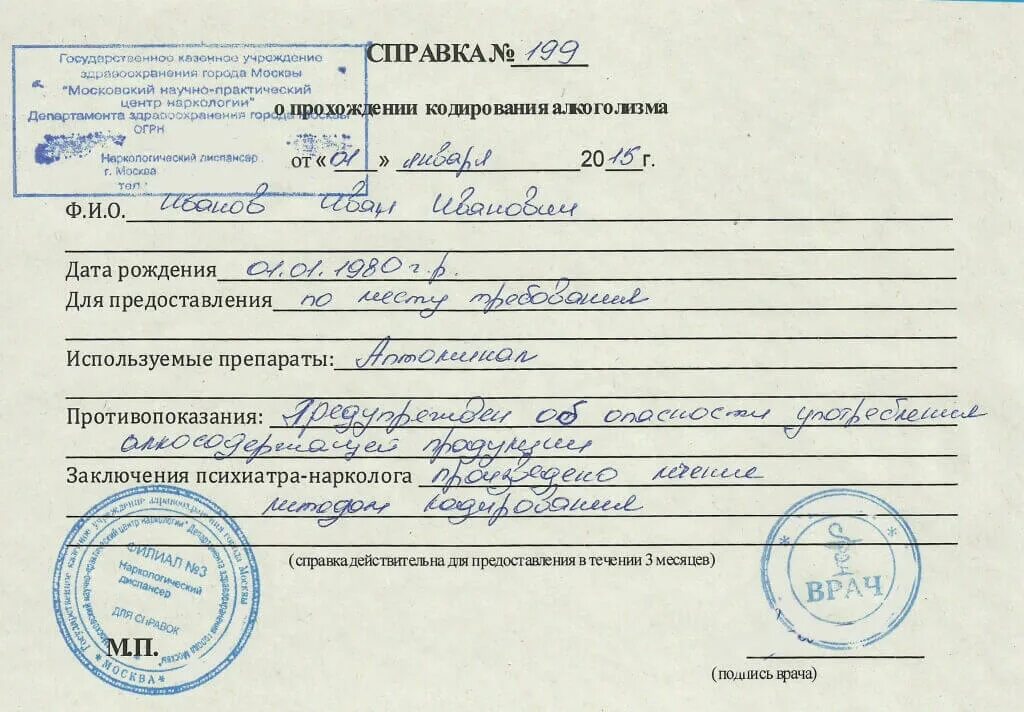 Государственное казенное учреждение
здравоохранения города Москвы
"Московский научно-практический
центр наркологии"
Департамонта здравоохранения города Москвы
ОГРН
Наркологический диспансер
г. Москва
тел.
СПРАВКА № 199
о прохождении кодирования алкоголизма
от « 01 » января 2015 г.
Ф.И.О. Иванов Иван Иванович
Дата рождения 01.01.1980 г.р.
Для предоставления по месту требования
Используемые препараты: Аптоминал
Противопоказания: Предупрежден об опасности употребления
алкосодержащей продукции
Заключения психиатра-нарколога произведено лечение
методом кодирования
(справка действительна для предоставления в течении 3 месяцев)
Государственное казенное учреждение здравоохранения города Москвы
"Московский научно-практический центр наркологии" Департамента здравоохранения города Москвы"
ФИЛИАЛ №3
Наркологический
диспансер
ДЛЯ СПРАВОК
* МОСКВА *
М.П.
ВРАЧ
(подпись врача)